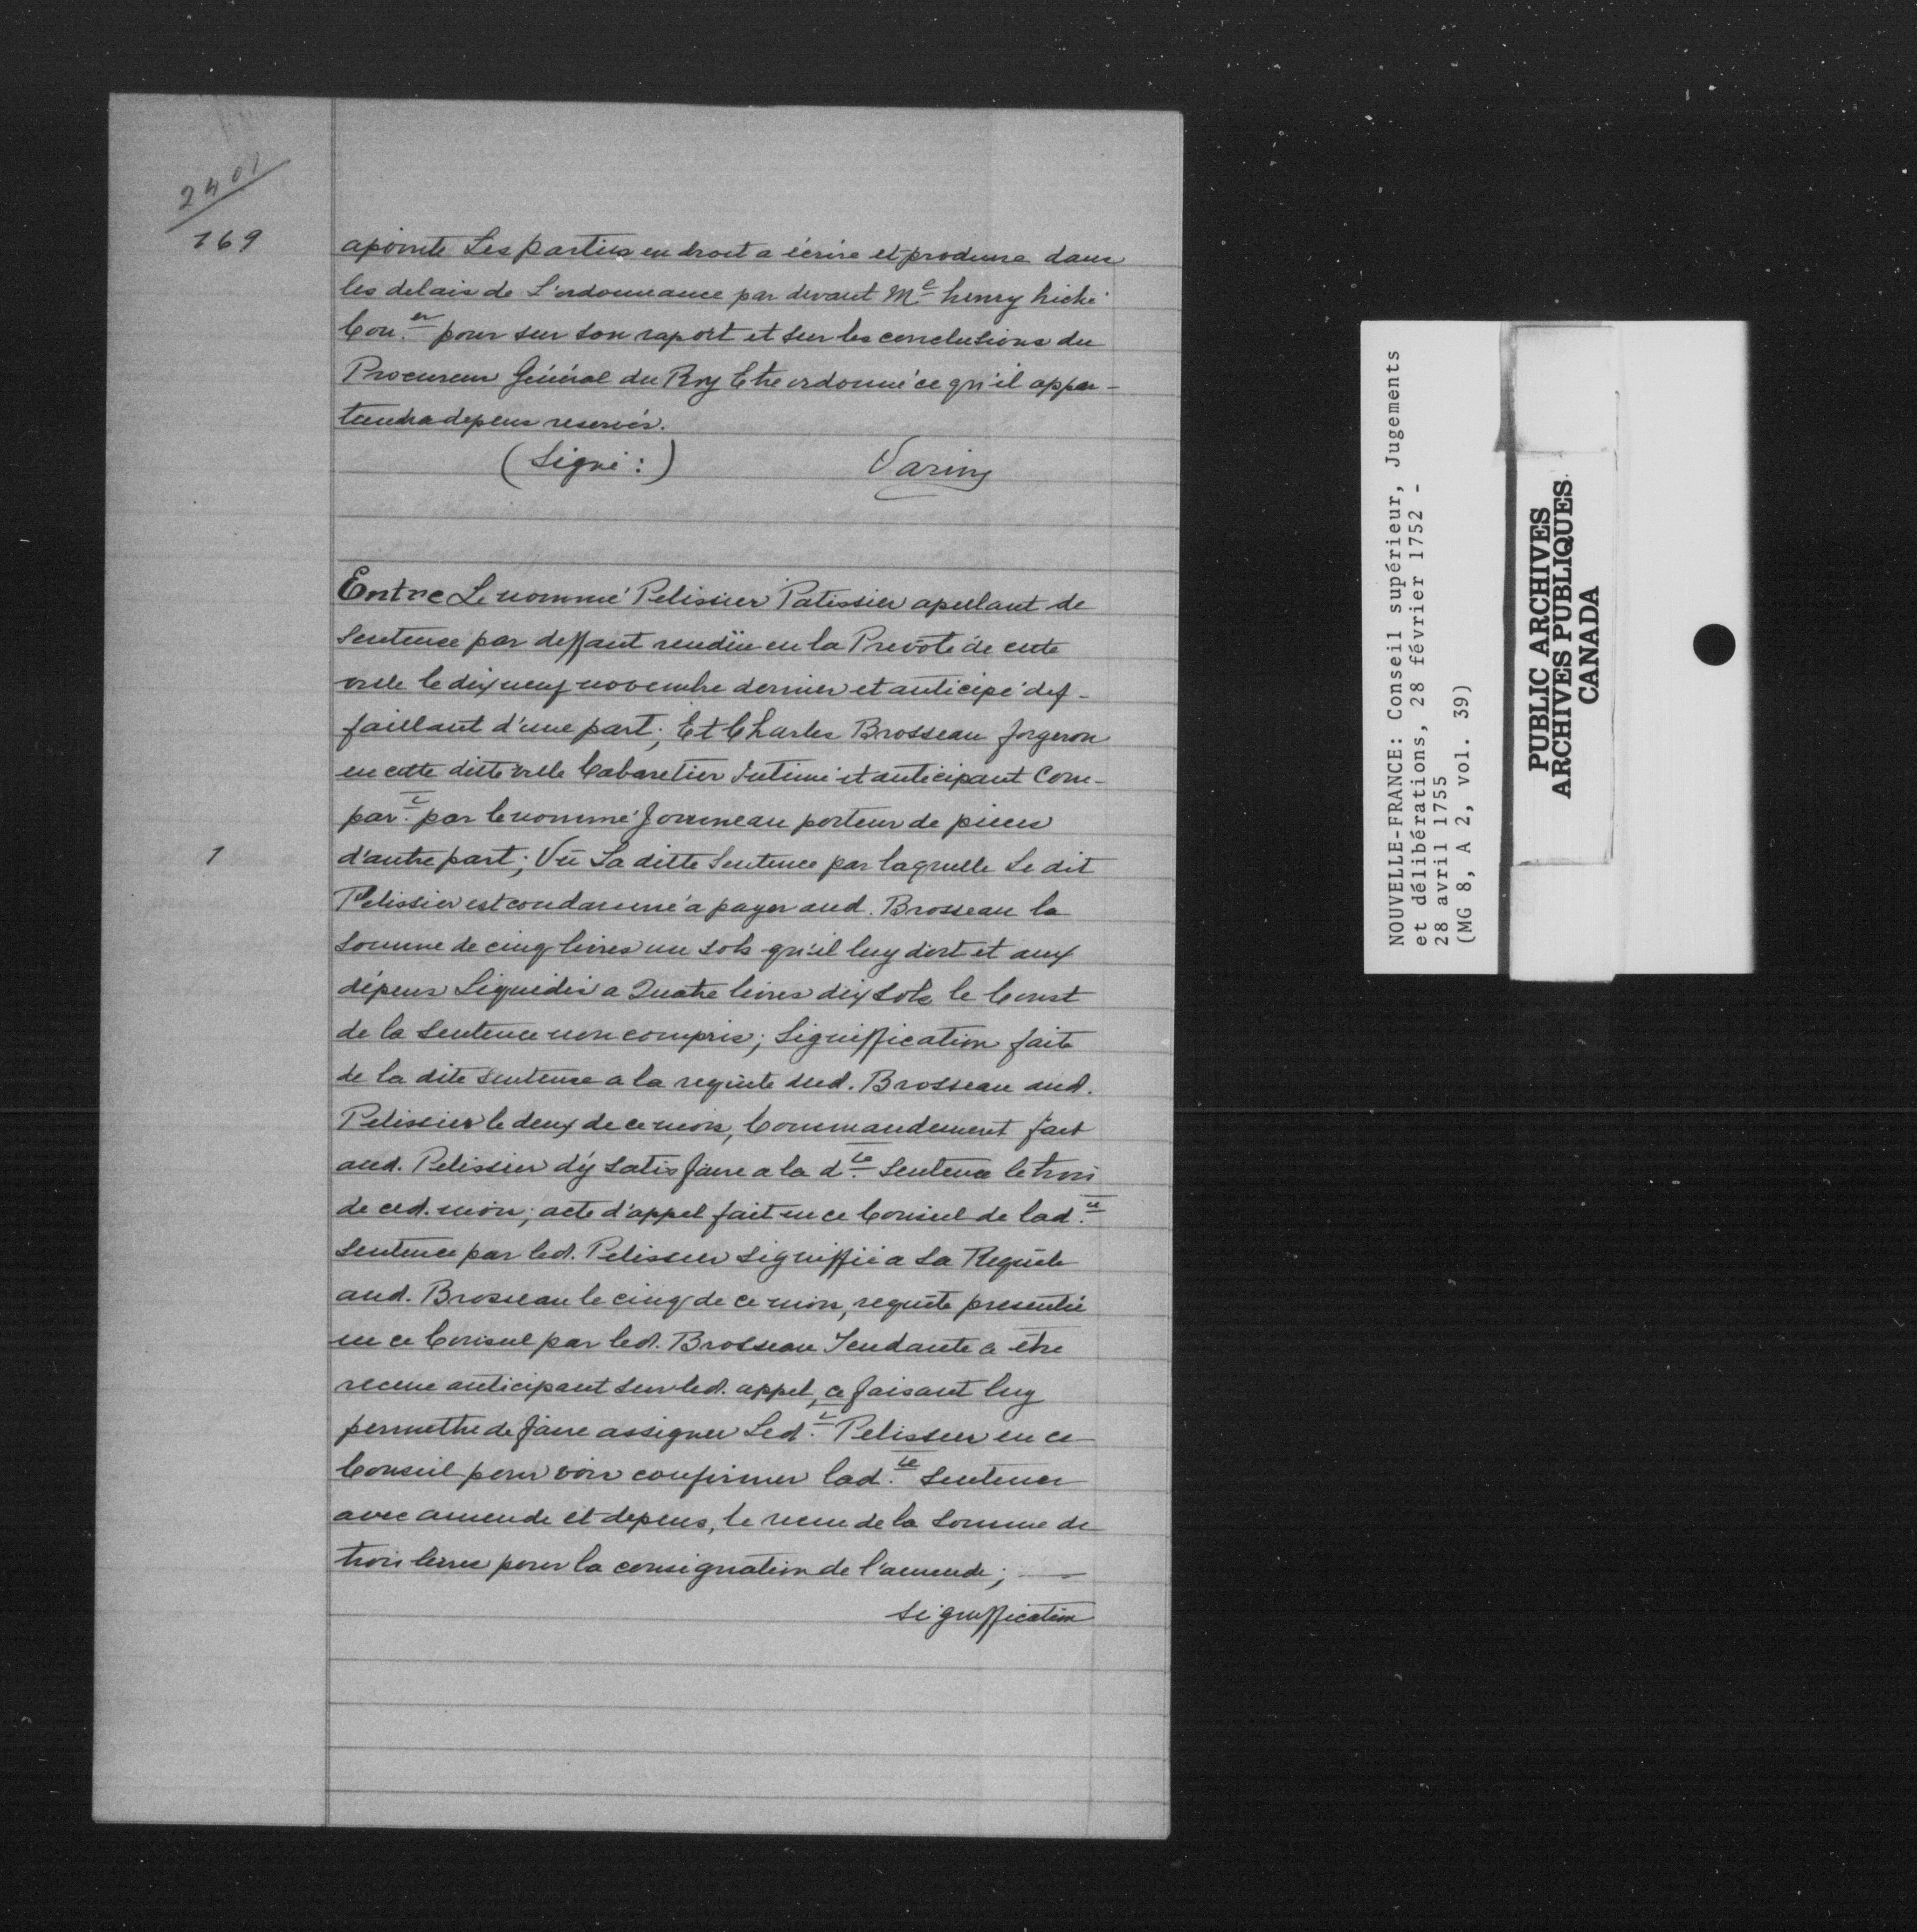 2401
169
apointé Les parties en droit a écrire et produire dans
les delais de L'ordonnance par devant Me henry hiché
Con.er pour sur son raport et sur les conclusions du
Procureur Général du Roy Etre ordonné ce qu'il appar-
tiendra depens reservés.
(Signé :) Varin
Entre Le nommé Pelissier Patissier apellant de
Sentence par deffaut rendüe en la Prevôté de cette
ville le dix neuf novembre dernier et anticipé def-
faillant d'une part; Et Charles Brosseau forgeron
en cette ditte ville Cabaretier Intimé et anticipant Com-
par.t par le nommé Journeau porteur de pieces
1
d'autre part; Vû La ditte Sentence par laquelle Le dit
Pelissier est condamné a payer aud. Brosseau la
Somme de cinq livres un sols qu'il luy doit et aux
dépens Liquidés a Quatre livres dix Sols le Coust
de la Sentence non compris; Signiffication faite
de la dite Sentence a la requête dud. Brosseau aud.
Pelissier le deux de ce mois, Commandement fait
aud. Pelissier d'y Satisfaire a la d.te Sentence le trois
de ced. mois; acte d'appel fait en ce Conseil de lad.te
Sentence par led. Pelissier Signiffié a Sa Requête
aud. Brosseau le cinq de ce mois, requête presentée
en ce Conseil par led. Brosseau Tendante a être
receue anticipant Sur led. appel, ce faisant luy
permettre de faire assigner Led.t Pelissier en ce
Conseil pour voir confirmer lad.te Sentence
avec amende et depens, le receu de la Somme de
trois livres pour la consignation de l'amende; —
Signiffication
NOUVELLE-FRANCE: Conseil supérieur, Jugements
et délibérations, 28 février 1752 -
28 avril 1755
(MG 8, A 2, vol. 39)
PUBLIC ARCHIVES
ARCHIVES PUBLIQUES
CANADA